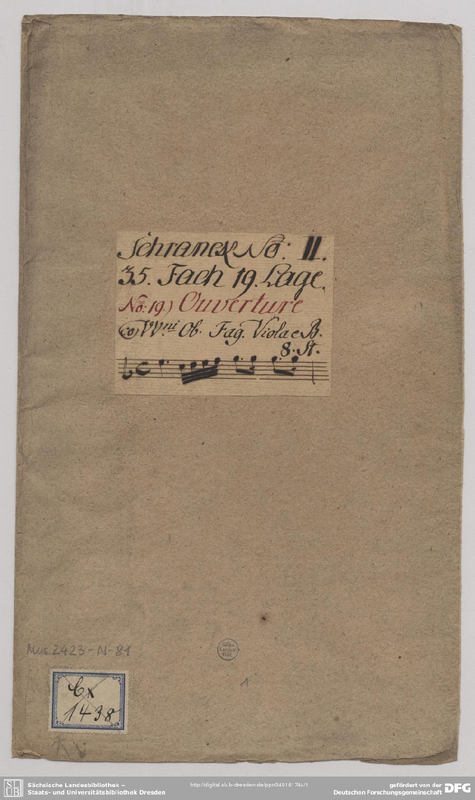 Schranck No: II.
35. Fach 19. Lage.
No: 19) Ouverture
co VVni Ob. Fag. Viola e B.
8. St.
Mus. 2423-N-81
1
Cx
1438
SLUB
Sächsische Landesbibliothek –
Staats- und Universitätsbibliothek Dresden
gefördert von der
Deutschen Forschungsgemeinschaft
DFG